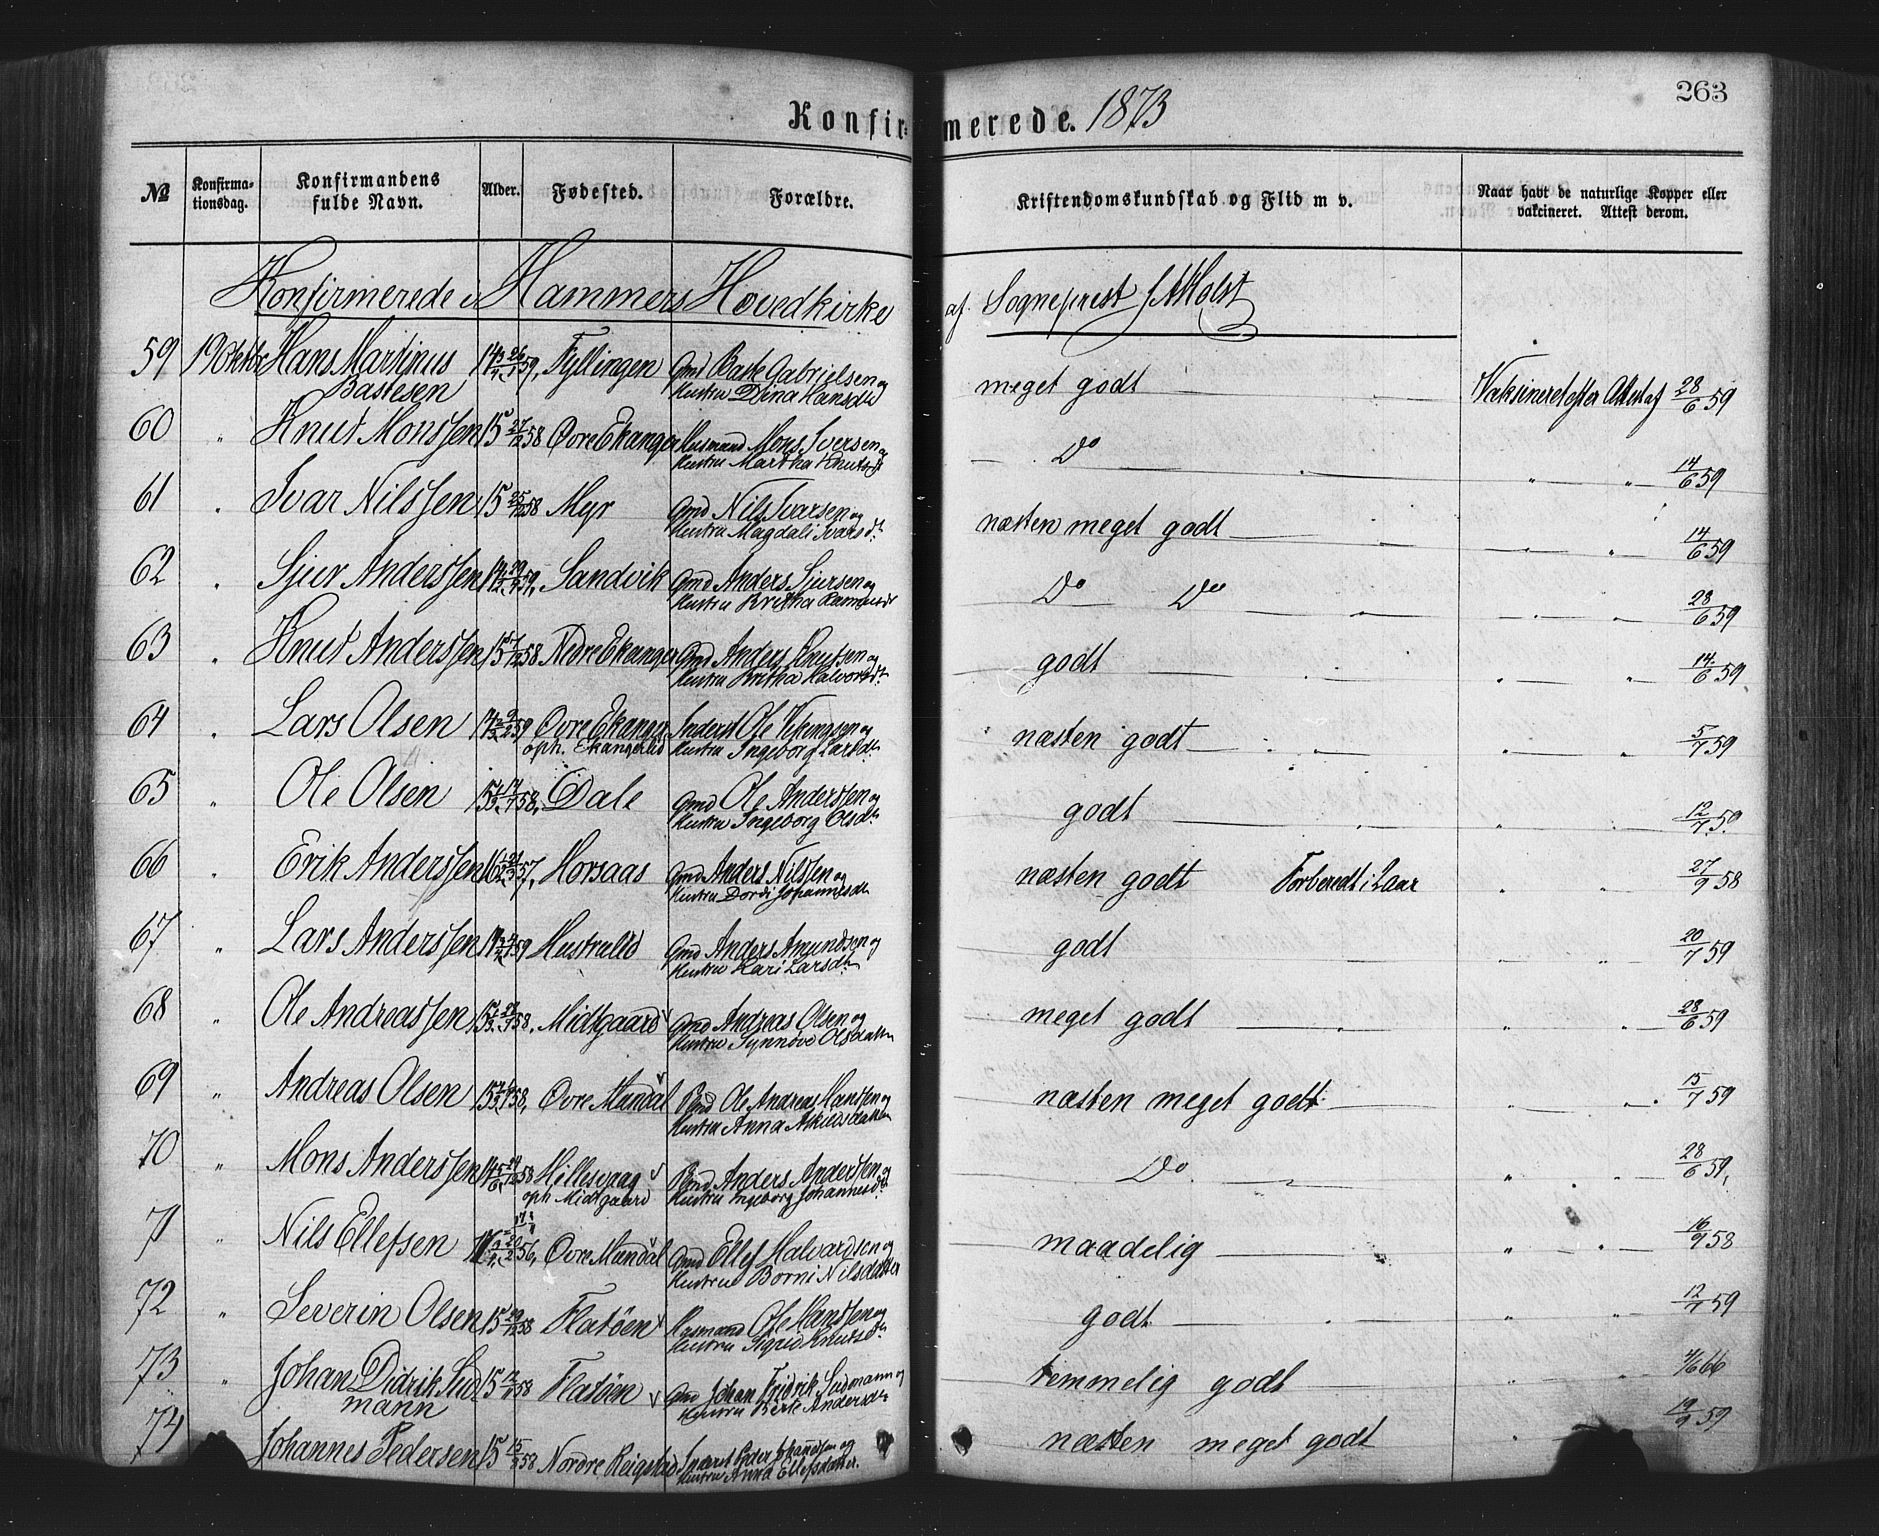 263
Konfirmerede. 1873
№ Konfirmationsdag. Konfirmandens fulde Navn. Alder. Fødested. Forældre. Kristendomskundskab og Flid m v. Naar havt de naturlige Kopper eller vakcineret. Attest derom.
Konfirmerede i Hammers Hovedkirke af Sogneprest Holst
59 19 Oktbr Hans Martinus Bastesen 26/1 59, Fyllingen Gmd Baste Gabrielsen og
Hustru Dina Hansdtr meget godt Vaksineret efter Attest af 28/6 59
60 " Knut Monssen 15 27/12 58 Øvre Ekanger Husmand Mons Iversen og
Hustru Martha Knutsdtr Do 14/6 59
61 " Ivar Nilssen 15 25/12 58 Myr Gmd Nils Ivarsen og
Hustru Magdali Ivarsdtr næsten meget godt " " 14/6 59
62 " Sjur Anderssen 59, Sandvik Gmd Anders Sjursen og
Hustru Britha Do Do " " 28/6 59
63 " Knut Anderssen 15 58 Nedre Ekanger Gmd Anders Knutsen og
Hustru Britha Halvorsdtr godt " " 14/6 59
64 " Lars Olsen 59 Øvre Ekanger Inderst Ole Vikingsen og
oph. Ekangerlid Hustru Ingeborg Larsdtr næsten godt " " 5/7 59
65 " Ole Olsen 58, Dale Gmd Ole Anderssen og
Hustru Ingeborg Olsdtr godt " " 12/7 59
66 " Erik Anderssen 16 57, Horsaas Gmd Anders Nilssen og
Hustru Dordi Johannesdtr næsten godt Forberedt i 2 aar " " 27/9 58
67 " Lars Anderssen 59 Hustrulid Gmd Anders Amundsen og
Hustru Kari Larsdtr godt " 20/7 59
68 " Ole Andreassen 15 58, Midtgaard Gmd Andreas Olsen og
Hustru Synnove Olsdatter meget godt " " 28/6 59
69 " Andreas Olsen 15 58, Øvre Mundal Gmd Ole Andreas Hanssen og
Hustru Anna næsten meget godt " " 15/7 59
70 " Mons Anderssen 14 58 Hillesvaag Gmd Anders Anderssen og
oph Midtgaard Hustru Ingeborg Johannesdtr Do " " 28/6 59,
71 " Nils Ellefsen 16 20/2 56, Øvre Mundal Gmd Ellef Halvardsen og
Hustru Borni Nilsdatter maadelig " " 16/9 58
72 " Severin Olsen 15 58 Flatøen Husmand Ole Hanssen og
Hustru Sigrid Knutsdtr godt " " 12/7 59
73 " Johan Didrik Sudmann 15 58 Flatøen Gmd Johan Fridrik Sudmann og
Hustru Berte Andersdtr temmelig godt " " 4/6 66
74 Johannes Pedersen 15 58 Nordre Reigstad Inderst Peder og
Hustru Anna Ellefsdatter. næsten meget godt " 19/9 59